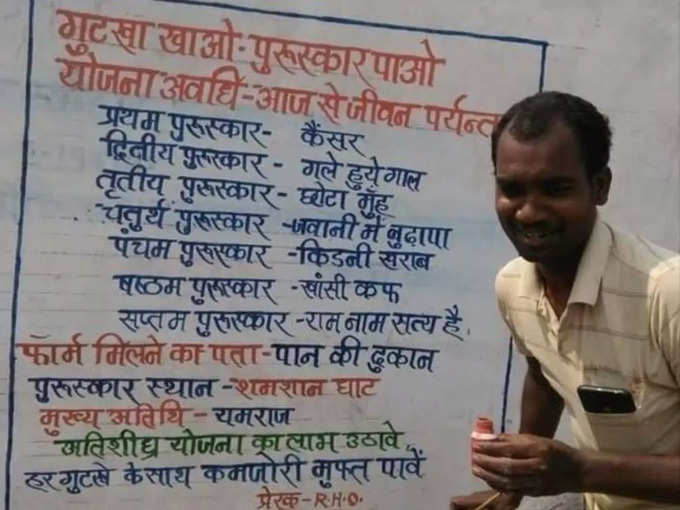 गुटखा खाओ-पुरूस्कार पाओ
योजना अवधि-आज से जीवन पर्यन्त
प्रथम पुरूस्कार- कैंसर
द्वितीय पुरूस्कार - गले हुये गाल
तृतीय पुरूस्कार - छोटा मुँह
चतुर्थ पुरूस्कार -जवानी में बुढापा
पंचम पुरूस्कार -किडनी खराब
षष्ठम पुरूस्कार -खांसी कफ
सप्तम पुरूस्कार -राम नाम सत्य है.
फार्म मिलने का पता-पान की दुकान
पुरूस्कार स्थान -शमशान घाट
मुख्य अतिथि - यमराज
अतिशीघ्र योजना का लाभ उठावे
हर गुटखे के साथ कमजोरी मुफ्त पावें
प्रेरक-R.H.O.